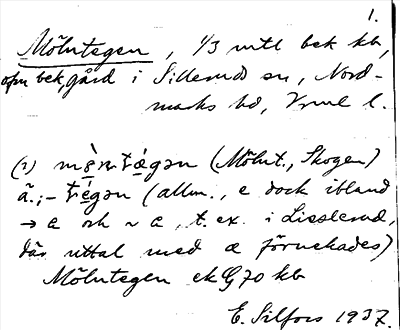 1.
Mölntegen, 1/3 mtl bek kb,
ofm bek, gård i Sillerud sn, Nord-
marks hd, Vrml l.
(1) (Mölnt., Skogen)
ä.; - (allm., e dock ibland
→ a och ~ a, t. ex. i Lisslerud,
där uttal med æ förnekades)
Mölntegen ek G 70 kb
E. Silfors 1937.